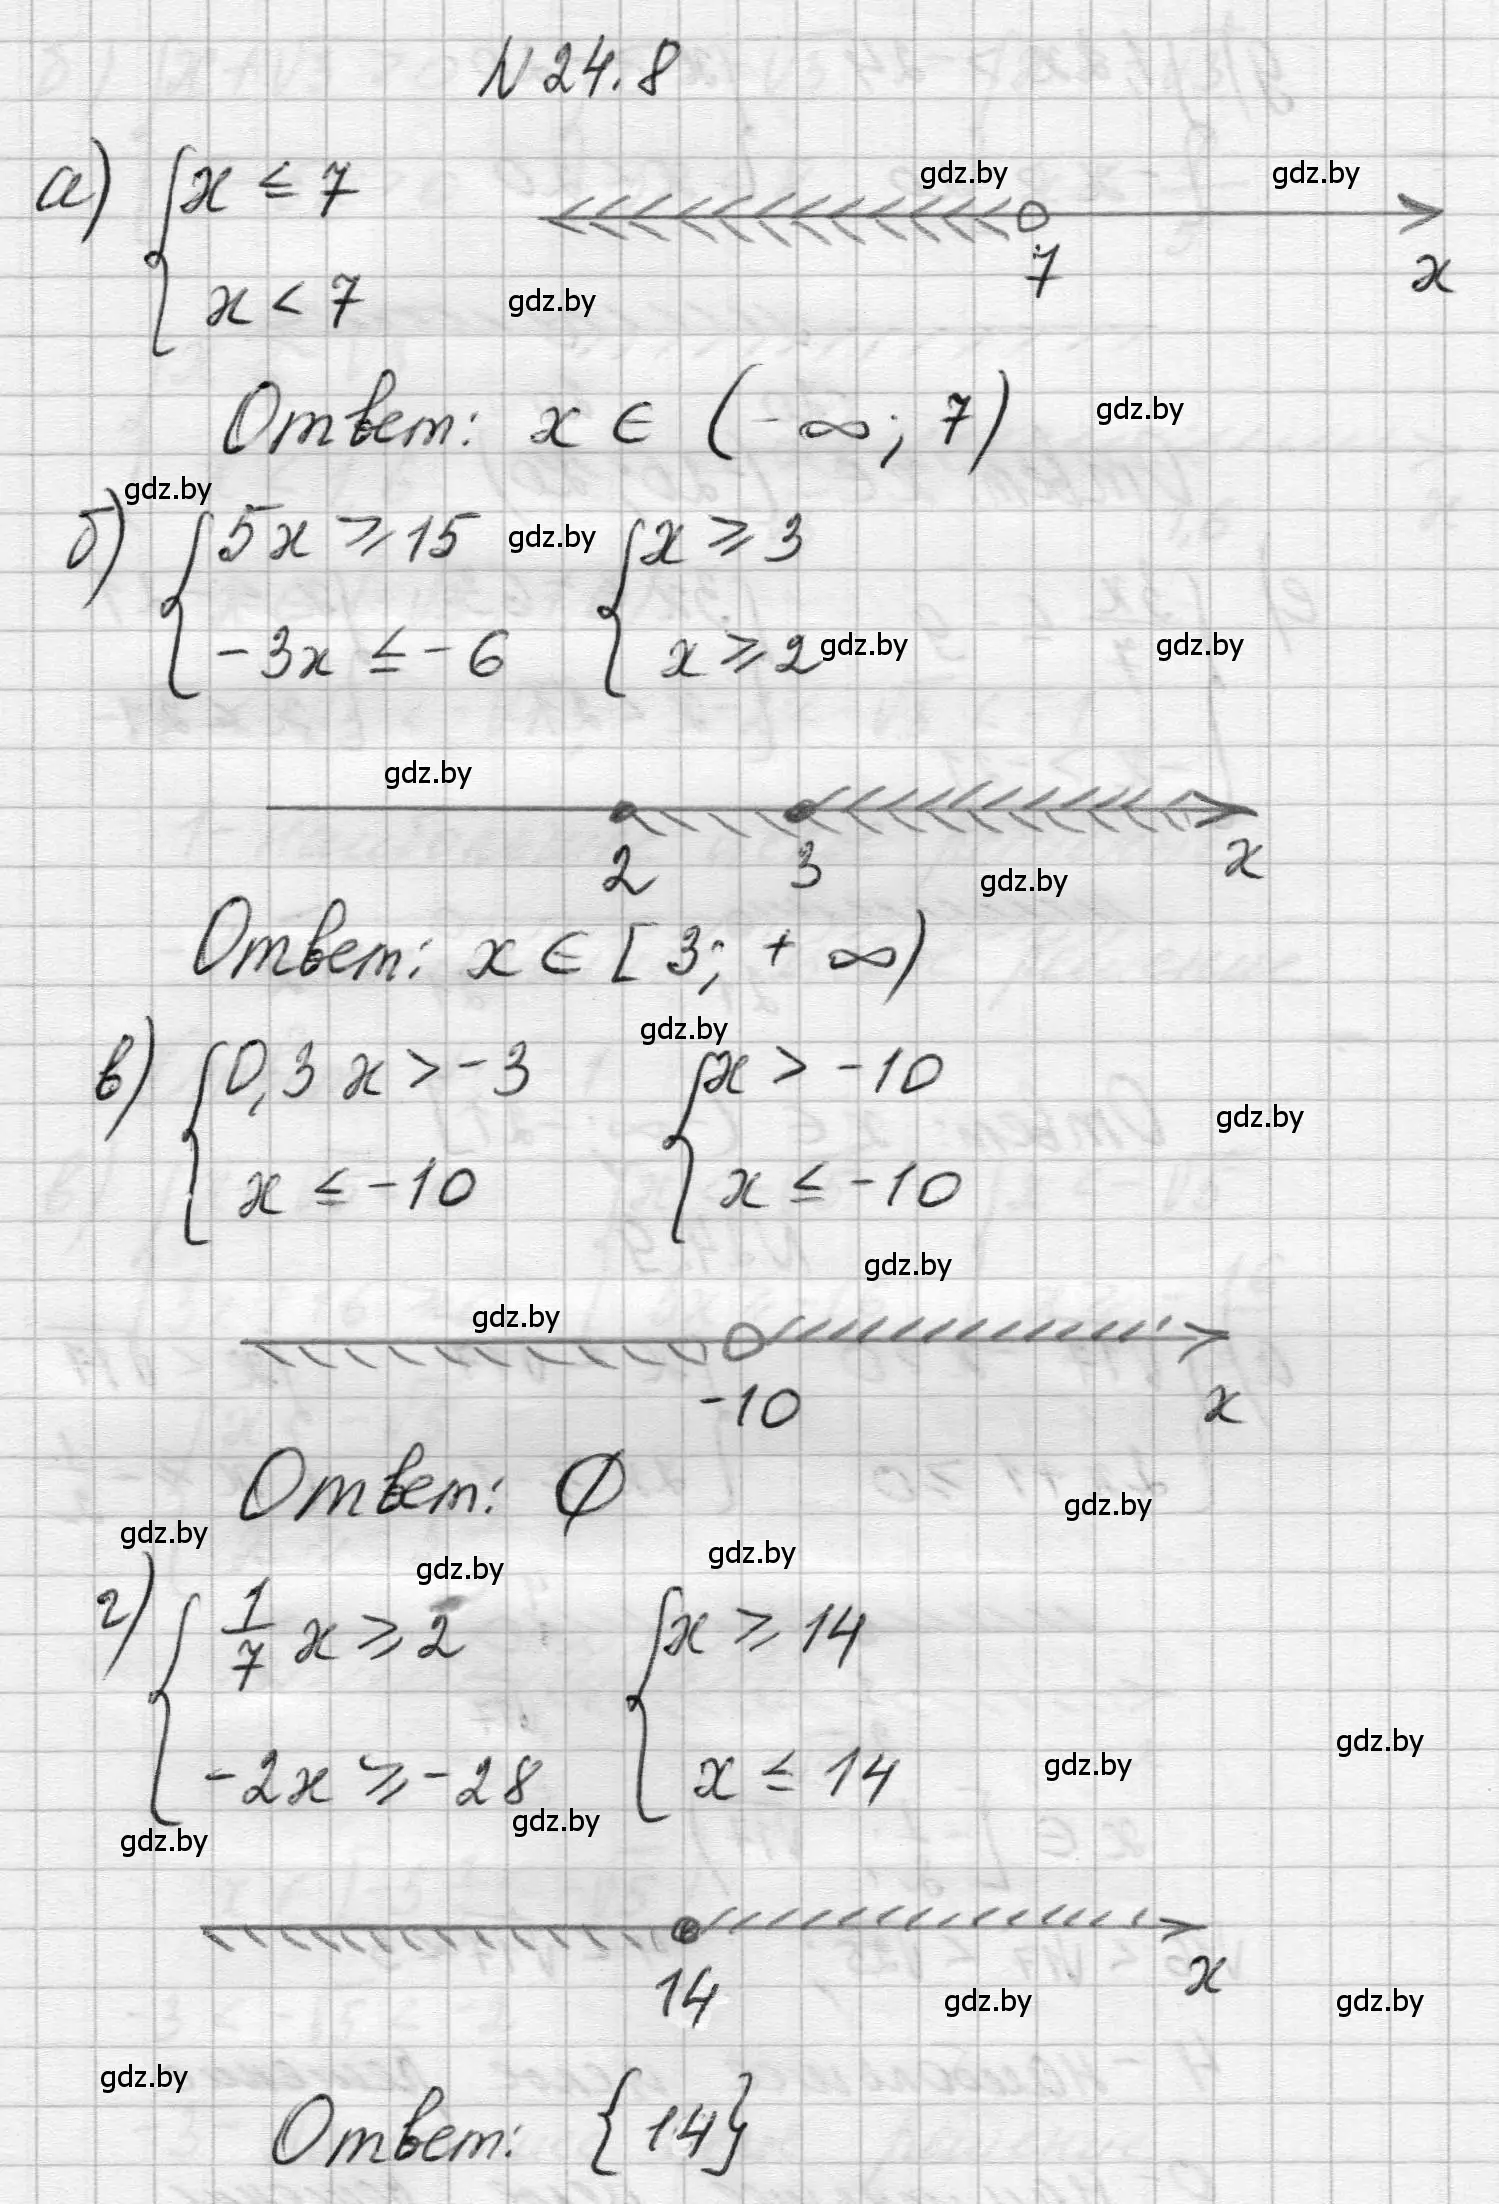 N 24.8
а) { x ≤ 7
gdz.by gdz.by
x < 7 gdz.by
7 x
Ответ: x ∈ (-∞; 7) gdz.by
gdz.by
б) { 5x ≥ 15 gdz.by { x ≥ 3
-3x ≤ -6 x ≥ 2 gdz.by gdz.by
gdz.by
2 3 x
gdz.by
Ответ: x ∈ [3; +∞)
gdz.by
в) { 0,3x > -3 { x > -10
gdz.by
x ≤ -10 x ≤ -10
gdz.by
gdz.by
-10 x
Ответ: ∅ gdz.by
gdz.by gdz.by gdz.by
г) { 1/7 x ≥ 2 { x ≥ 14
gdz.by
-2x ≥ -28 x ≤ 14 gdz.by
gdz.by gdz.by
14 x
gdz.by gdz.by
gdz.by
Ответ: {14}